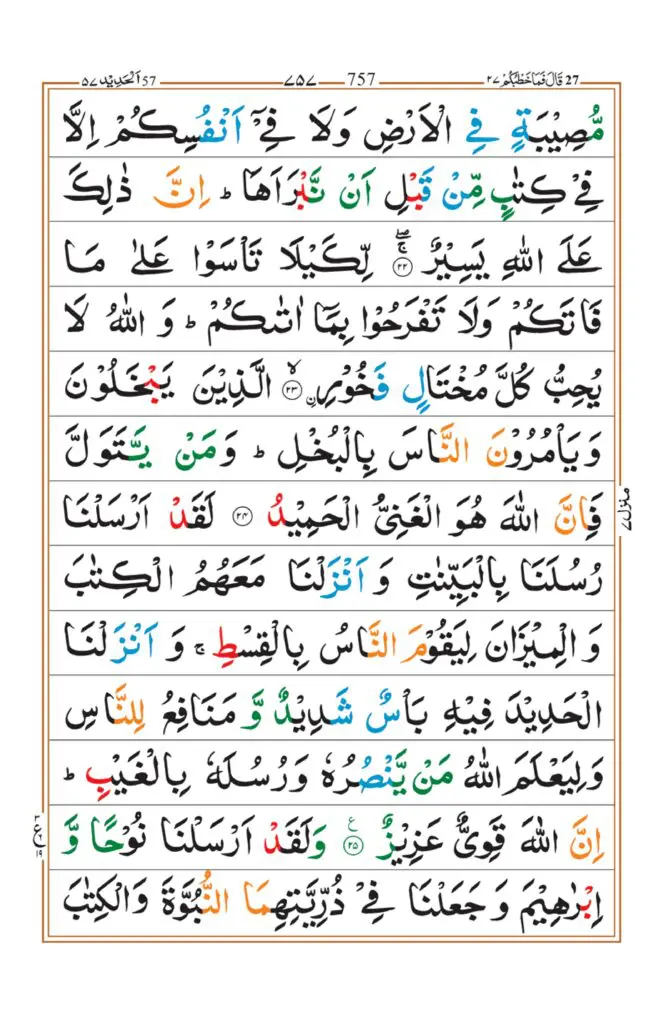 27 قَالَ فَمَا خَطْبُكُمْ ٢٧ 757 ٧٥٧ 57 اَلْحَدِيْد ٥٧
مُّصِيْبَةٍ فِي الْاَرْضِ وَلَا فِيْۤ اَنْفُسِكُمْ اِلَّا
فِيْ كِتٰبٍ مِّنْ قَبْلِ اَنْ نَّبْرَاَهَا ؕ اِنَّ ذٰلِكَ
عَلَى اللّٰهِ يَسِيْرٌ ۚۖ ﴿٢٢﴾ لِّكَيْلَا تَاْسَوْا عَلٰى مَا
فَاتَكُمْ وَلَا تَفْرَحُوْا بِمَاۤ اٰتٰىكُمْ ؕ وَ اللّٰهُ لَا
يُحِبُّ كُلَّ مُخْتَالٍ فَخُوْرِۙ ﴿٢٣﴾ ن الَّذِيْنَ يَبْخَلُوْنَ
وَ يَاْمُرُوْنَ النَّاسَ بِالْبُخْلِ ؕ وَمَنْ يَّتَوَلَّ
فَاِنَّ اللّٰهَ هُوَ الْغَنِيُّ الْحَمِيْدُ ﴿٢٤﴾ لَقَدْ اَرْسَلْنَا
رُسُلَنَا بِالْبَيِّنٰتِ وَ اَنْزَلْنَا مَعَهُمُ الْكِتٰبَ
وَ الْمِيْزَانَ لِيَقُوْمَ النَّاسُ بِالْقِسْطِ ۚ وَ اَنْزَلْنَا
الْحَدِيْدَ فِيْهِ بَاْسٌ شَدِيْدٌ وَّ مَنَافِعُ لِلنَّاسِ
وَلِيَعْلَمَ اللّٰهُ مَنْ يَّنْصُرُهٗ وَرُسُلَهٗ بِالْغَيْبِ ؕ
اِنَّ اللّٰهَ قَوِيٌّ عَزِيْزٌ ﴿٢٥﴾ ع وَلَقَدْ اَرْسَلْنَا نُوْحًا وَّ
اِبْرٰهِيْمَ وَ جَعَلْنَا فِيْ ذُرِّيَّتِهِمَا النُّبُوَّةَ وَالْكِتٰبَ
منزل ٧